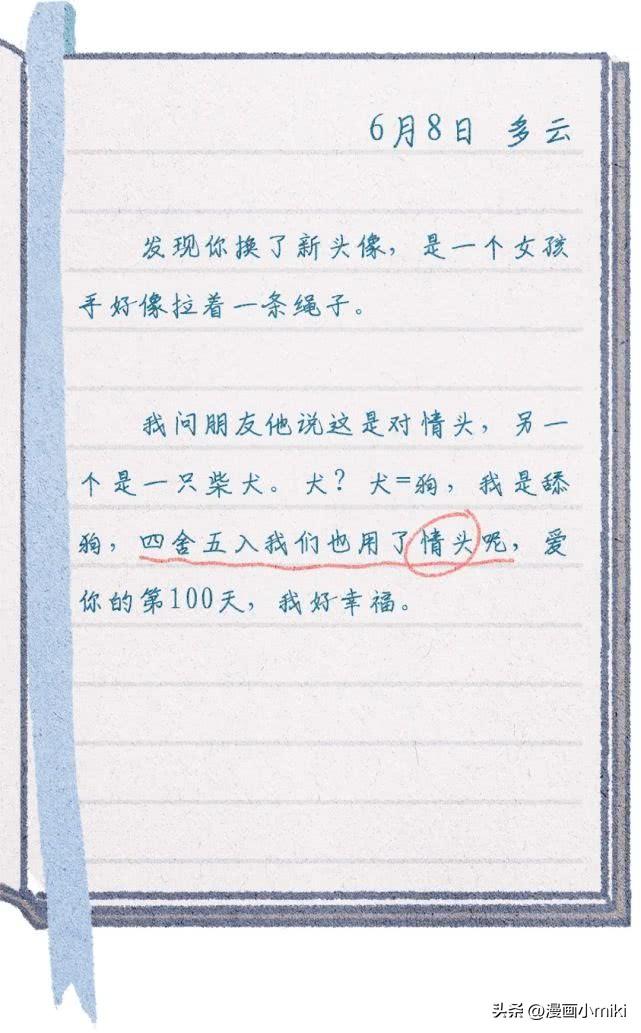 6月8日 多云
发现你换了新头像，是一个女孩
手好像拉着一条绳子。
我问朋友他说这是对情头，另一
个是一只柴犬。犬？犬=狗，我是舔
狗，四舍五入我们也用了情头呢，爱
你的第100天，我好幸福。
头条 @漫画小miki